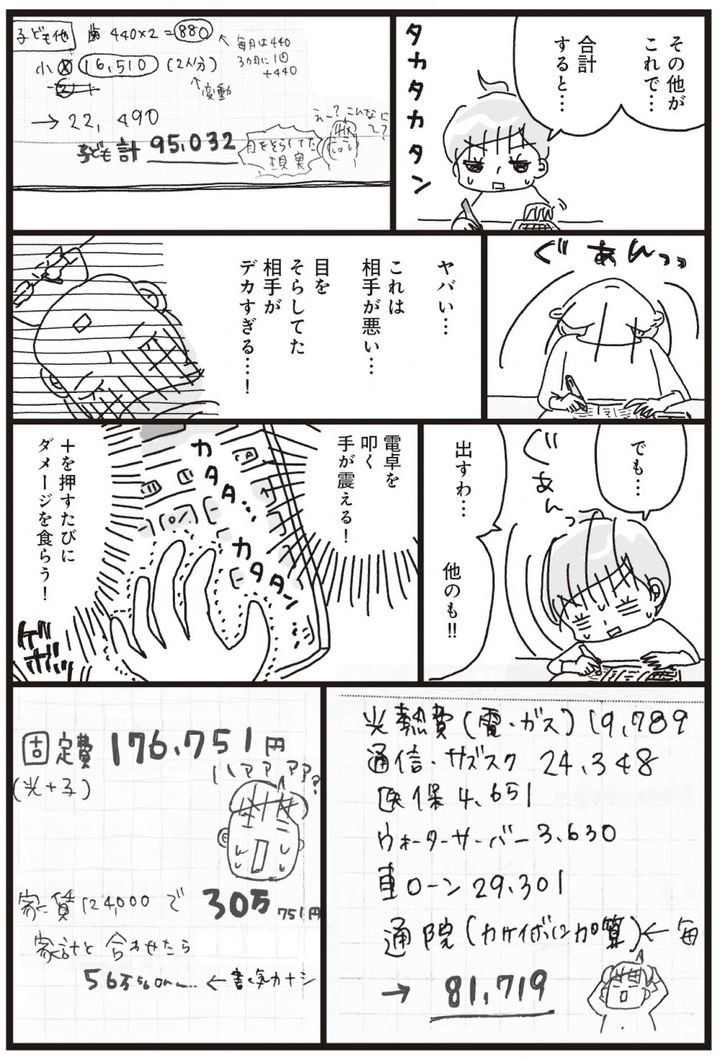 その他が
これで…
合計
すると…
タカタカタン
子ども他 歯 440×2=880
毎月は440
3カ月に1回
+440
16,510 (2人分)
変動
→22,490
子ども計 95,032
目をそらしてた
現実
えー?こんなに
ぐあんっっ
ヤバい…
これは
相手が悪い…
目を
そらしてた
相手が
デカすぎる…!
でも…
出すわ…
他のも!!
ぐあんっ
電卓を
叩く
手が震える!
カタタ…
カタタン
+を押すたびに
ダメージを食らう!
光熱費(電・ガス) 19,789
通信・サブスク 24,348
医保 4,651
ウォーターサーバー 3,630
車ローン 29,301
通院(カケイボに加算)←毎
→ 81,719
固定費 176,751円
(光+子)
家賃124,000で 30万751円
家計と合わせたら